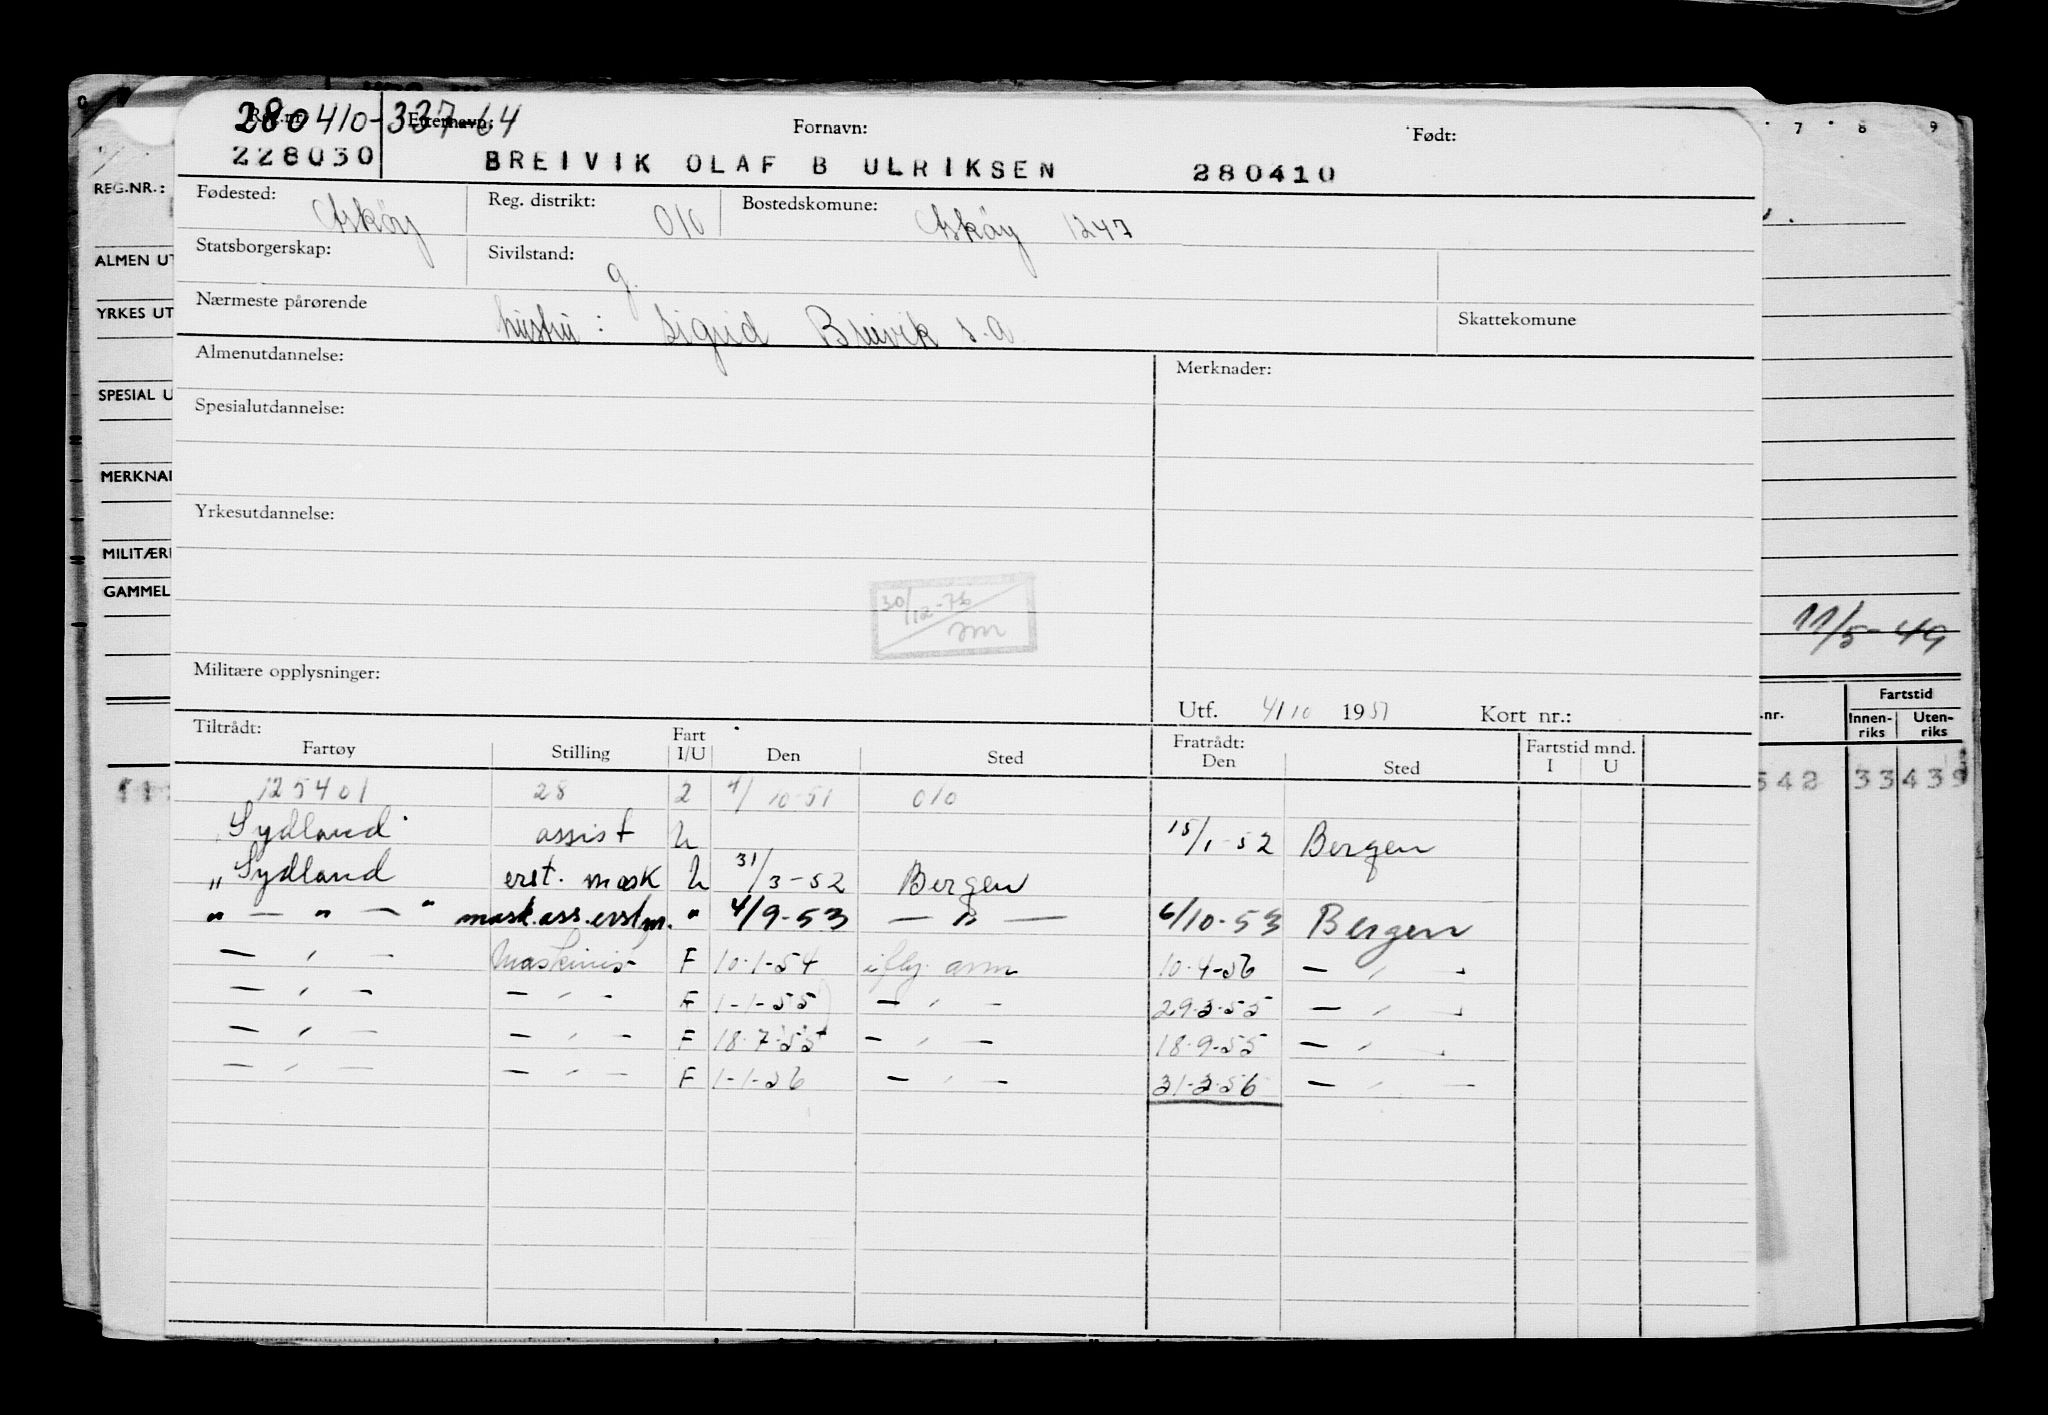 280410-33764
Reg.nr. Etternavn: Fornavn: Født:
228030 BREIVIK OLAF B ULRIKSEN 280410
Fødested: Askøy Reg. distrikt: 010 Bostedskomune: Askøy 1247
Statsborgerskap: Sivilstand: g.
Nærmeste pårørende hustru: Sigrid Breivik s.a. Skattekomune
Almenutdannelse: Merknader:
Spesialutdannelse:
Yrkesutdannelse:
30/12-76
Militære opplysninger:
Utf. 4/10 1951 Kort nr.:
Tiltrådt: Fart Fratrådt: Fartstid mnd.
Fartøy Stilling I/U Den Sted Den Sted I U
125401 28 2 4/10-51 010
"Sydland" assist U 15/1-52 Bergen
"Sydland erst. mask U 31/3-52 Bergen
" — " — " mask.ass.erstm. " 4/9-53 — " — 6/10-53 Bergen
— " — Maskinis- F 10-1-54 iflg. asm 10-4-56 — " —
— " — — " — F 1-1-55 — " — 29-3-55 — " —
— " — — " — F 18-7-55 — " — 18-9-55 — " —
— " — — " — F 1-1-56 — " — 31-3-56 — " —
REG.NR.:
ALMEN UT
YRKES UT
SPESIAL U
MERKNA
MILITÆR
GAMMEL
7 8 9
11/5-49
.nr. Fartstid
Innen-riks Uten-riks
542 33 439